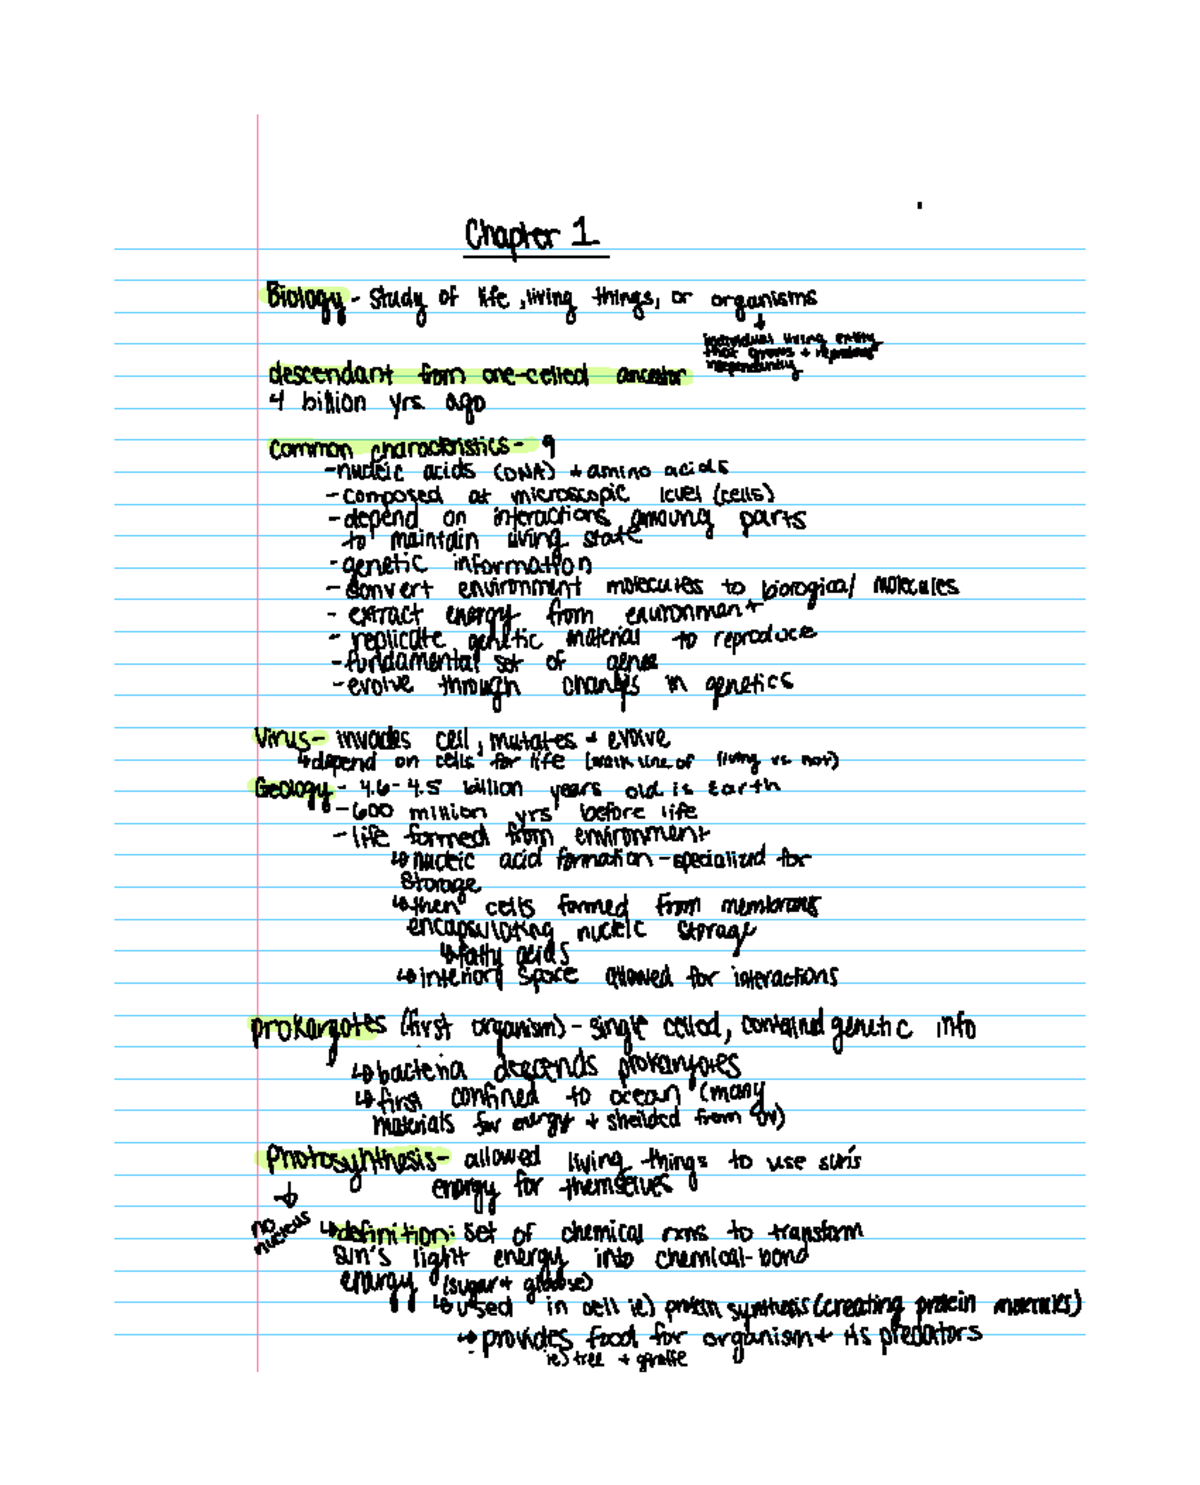 Chapter 1
Biology - study of life, living things, or organisms
individual living entity
that grows + reproduces
independently
descendant from one-celled ancestor
4 billion yrs. ago
Common characteristics - 9
- nucleic acids (DNA) + amino acids
- composed at microscopic level (cells)
- depend on interactions among parts
to maintain living state
- genetic information
- convert environment molecules to biological molecules
- extract energy from environment
- replicate genetic material to reproduce
- fundamental set of genes
- evolve through changes in genetics
Virus - invades cell, mutates + evolve
↳ depend on cells for life (line of living vs. not)
Geology - 4.6 - 4.5 billion years old is Earth
- 600 million yrs before life
- life formed from environment
↳ nucleic acid formation - specialized for
storage
↳ then cells formed from membranes
encapsulating nucleic storage
↳ fatty acids
↳ interior space allowed for interactions
prokaryotes (first organism) - single celled, contained genetic info
↳ bacteria descends prokaryotes
↳ first confined to ocean (many
materials for energy + sheilded from UV)
Photosynthesis - allowed living things to use sun's
energy for themselves
no
nucleus
↳ definition: set of chemical rxns to transform
sun's light energy into chemical-bond
energy (sugar + glucose)
↳ used in cell ie) protein synthesis (creating protein molecules)
↳ provides food for organism + its predators
ie) tree + giraffe